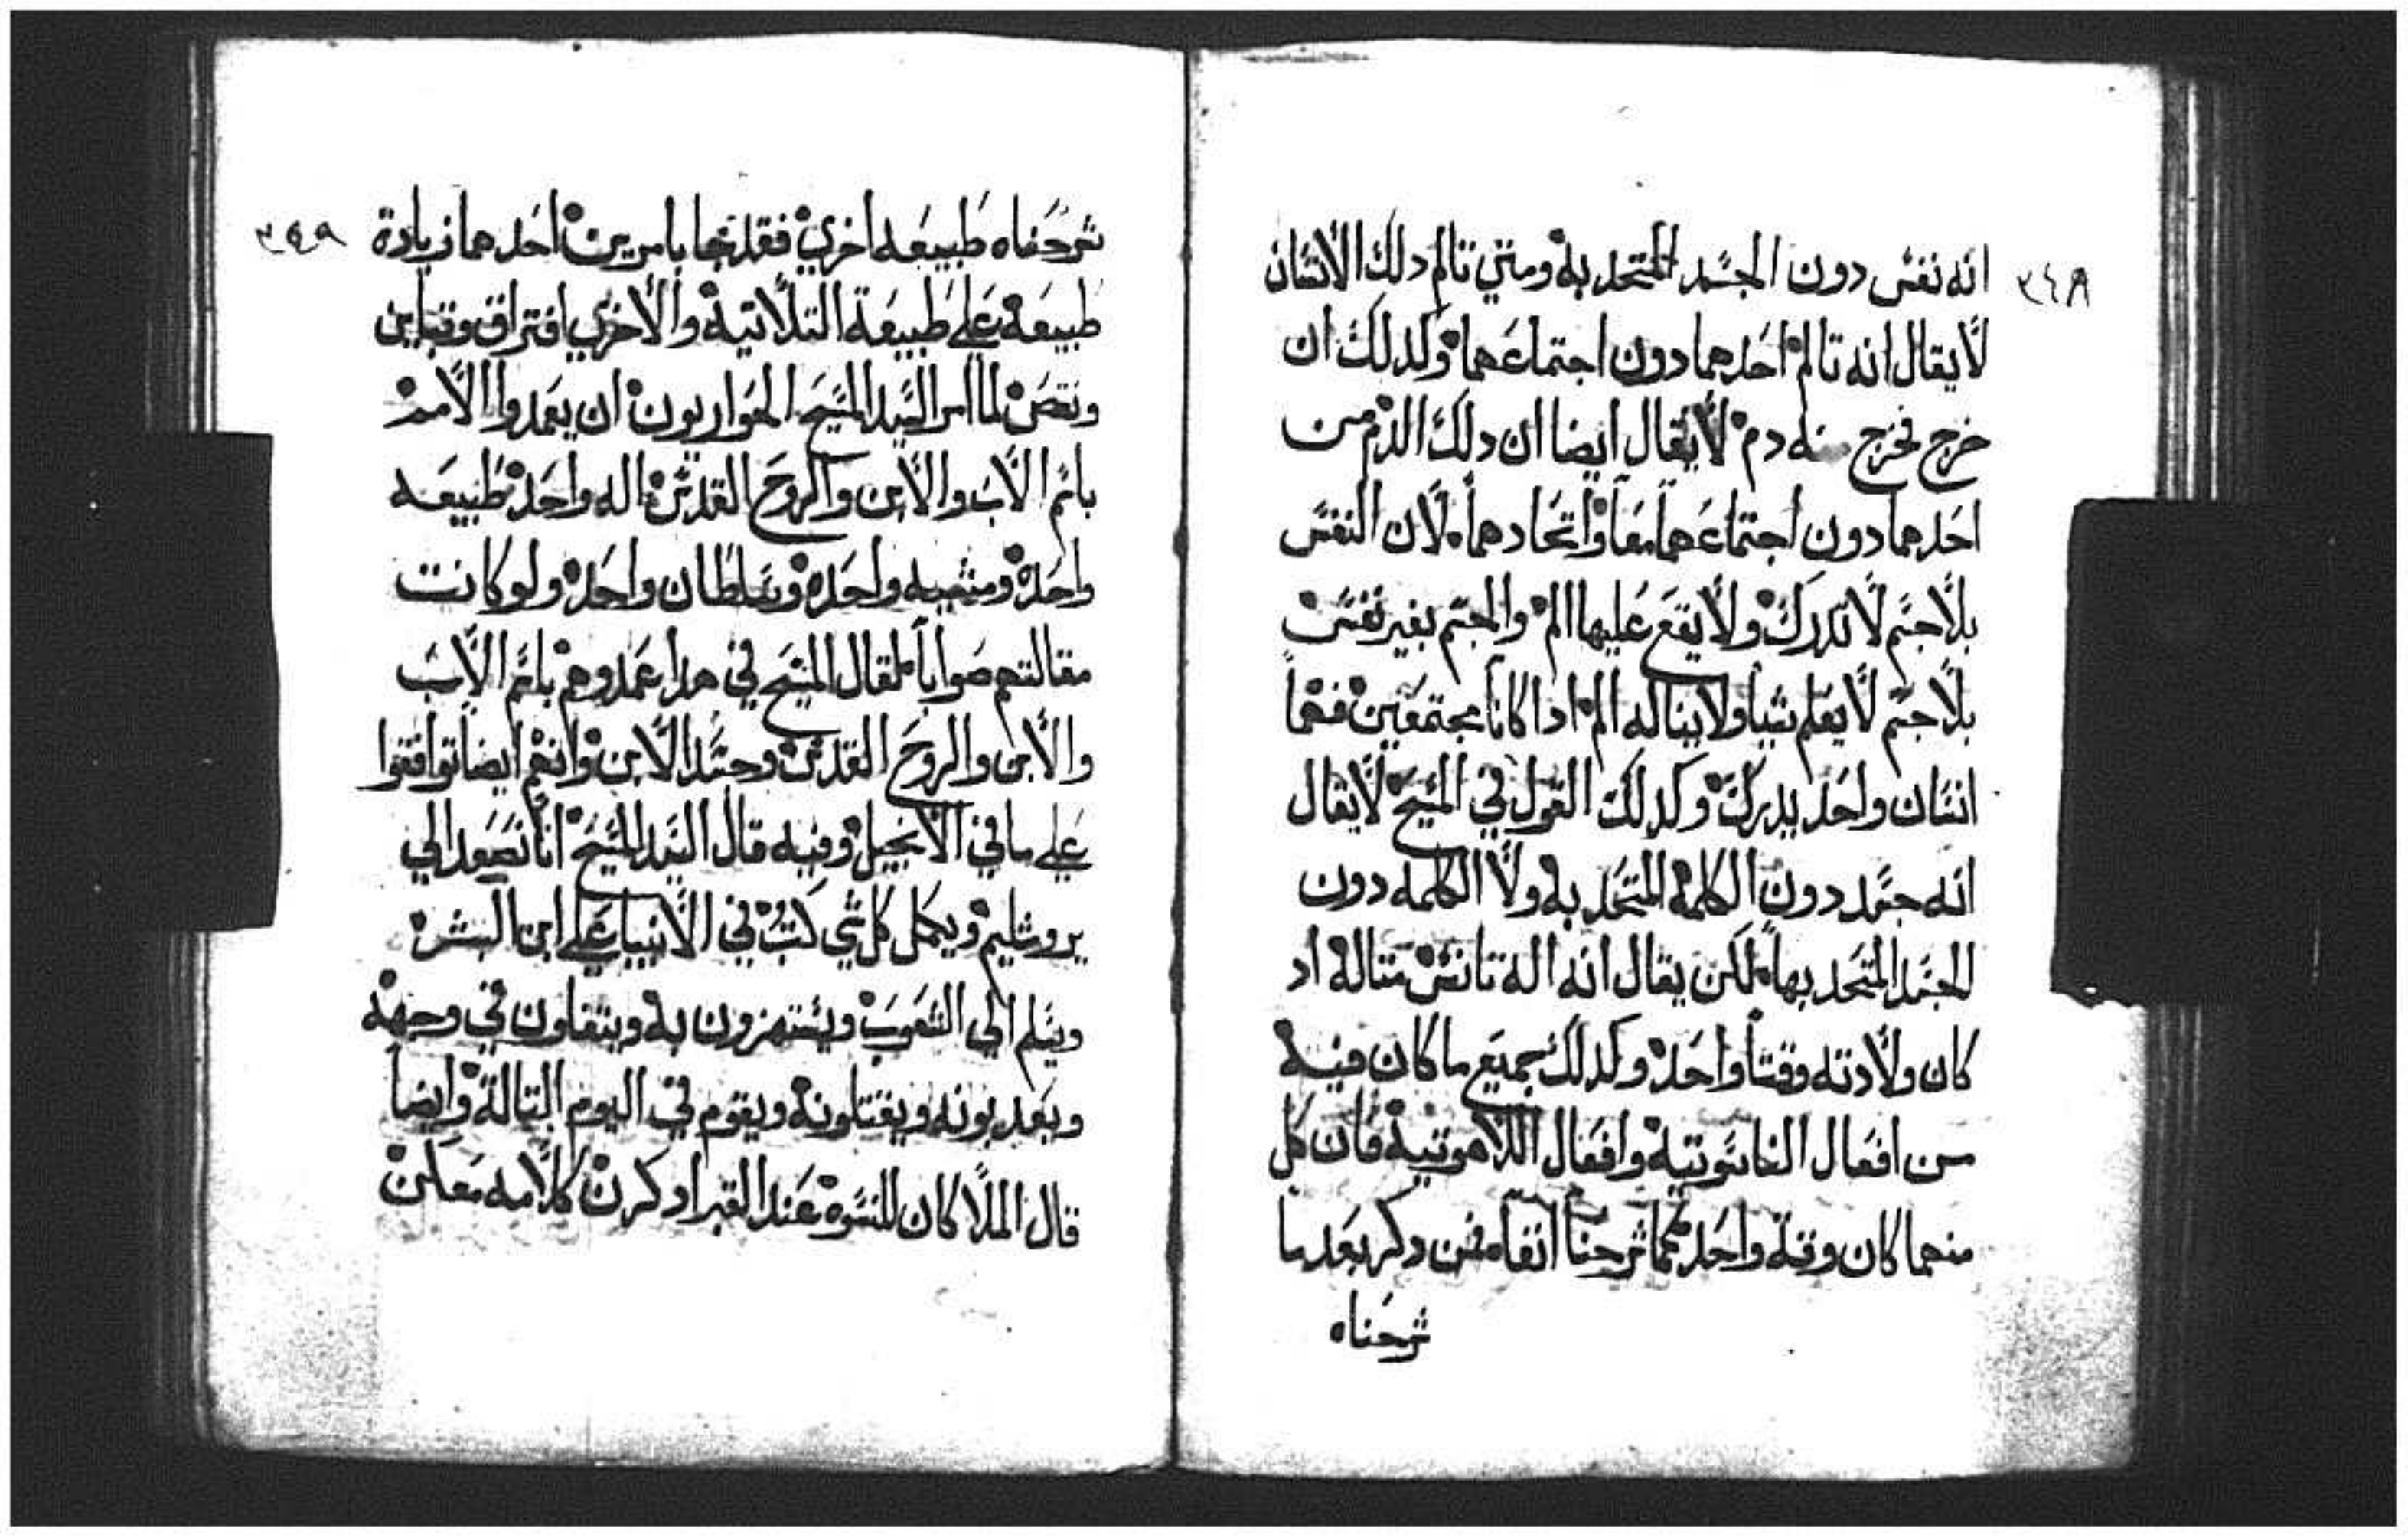 ٣٤٨
انه نفس دون الجسد المتحد به ومتي تالم دلك الانسان
لا يقال انه تالم احدهما دون اجتماعهما ولدلك ان
خرج فخرج منه دم لا يقال ايضا ان دلك الدم من
احدهما دون اجتماعهما معا واتحادهما لان النفس
بلا جسم لا تدرك ولا يقع عليها الم والجسم بغير نفس
بلا جسم لا يعلم شيا ولا يناله الم ادا كانا مجتمعين فهما
انسان واحد يدرك وكدلك القول في المسيح لا يقال
انه جسد دون الكلمة المتحد به ولا الكلمه دون
للجسد المتحد بها لكن يقال انه اله تانس متاله اد
كان ولادته وقتا واحد وكدلك جميع ما كان فيه
من افعال الناسوتية وافعال اللاهوتية فان كل
منهما كان وقته واحد كما شرحنا انفا فمن دكر بعد ما
شرحناه
٣٤٩
شرحناه طبيعه اخري فقد جا بامرين احدهما زيادة
طبيعة علي طبيعة التلاتية والاخري افتراق وتباين
ونقض لما امر السيد المسيح الحواريون ان يعمدوا الامم
باسم الاب والابن والروح القدس اله واحد طبيعه
واحدة ومشيه واحدة وسلطان واحد ولو كانت
مقالتهم صوابا لقال المسيح في هدا عمدوهم باسم الاب
والابن والروح القدس وجسد الابن وانهم ايضا توافقوا
علي ما في الانجيل وفيه قال السيد المسيح انا نصعد الي
يروشليم ويكمل كل شي كتب في الانبيا علي ابن البشر
ويسلم الي الشعوب ويستهزون به ويتفلون في وجهه
ويعدبونه ويقتلونه ويقوم في اليوم التالة وايضا
قال الملاك ان للنسوة عند القبر ادكرن كلامه معلن